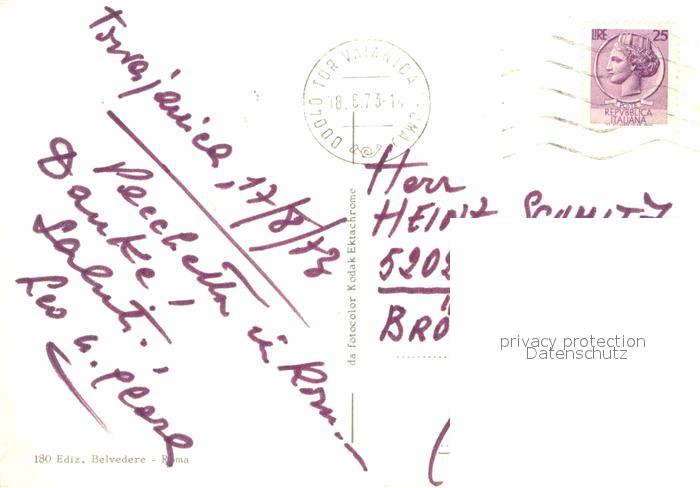 Torvajanica, 17/8/73
Pacchetto in Rom...
Danke!
Saluti...
Leo u. Clara
180 Ediz. Belvedere - Roma
da fotocolor Kodak Ektachrome
00040 TOR VAIANICA (ROMA)
18.8.73-14
LIRE 25
POSTE
REPVBBLICA
ITALIANA
Herr
HEINZ SCHMITZ
5202
BRÖ
privacy protection
Datenschutz